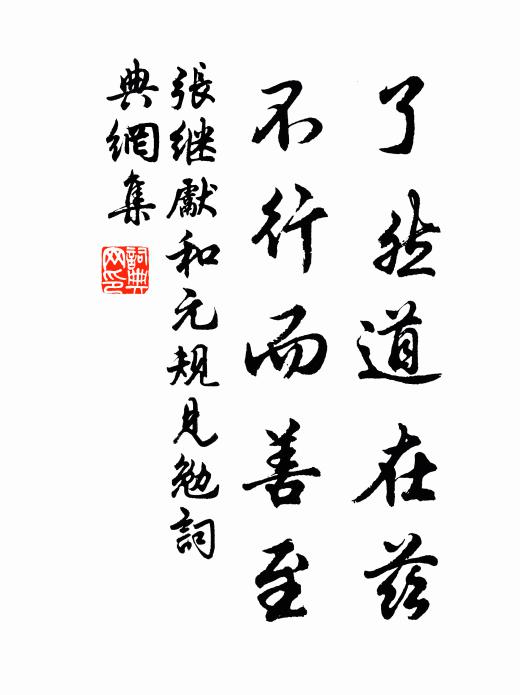 了然道在茲
不行而善至
張继獻和元規見勉詞
典網集
詞典
网印